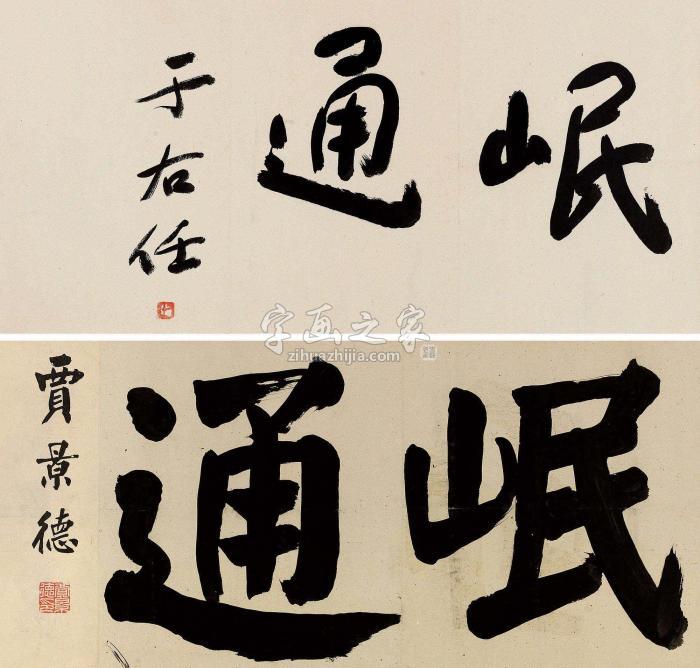 岷通
于右任
字画之家
zihuazhijia.com
岷通
賈景德